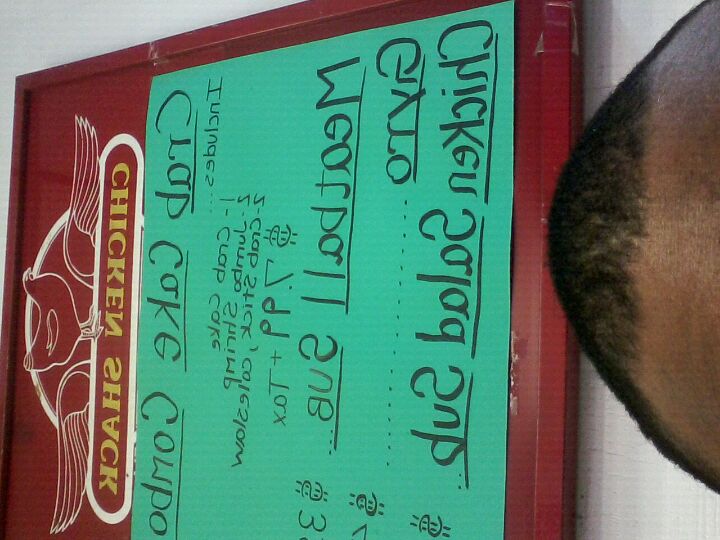 CHICKEN SHACK
Crab Cake Combo
Includes...
1- Crab Cake
2- Jumbo Shrimp
2- Crab Stick, coleslaw
$7.99 + Tax
Meatball Sub... $3
Gyro............... $
Chicken Salad Sub.. $